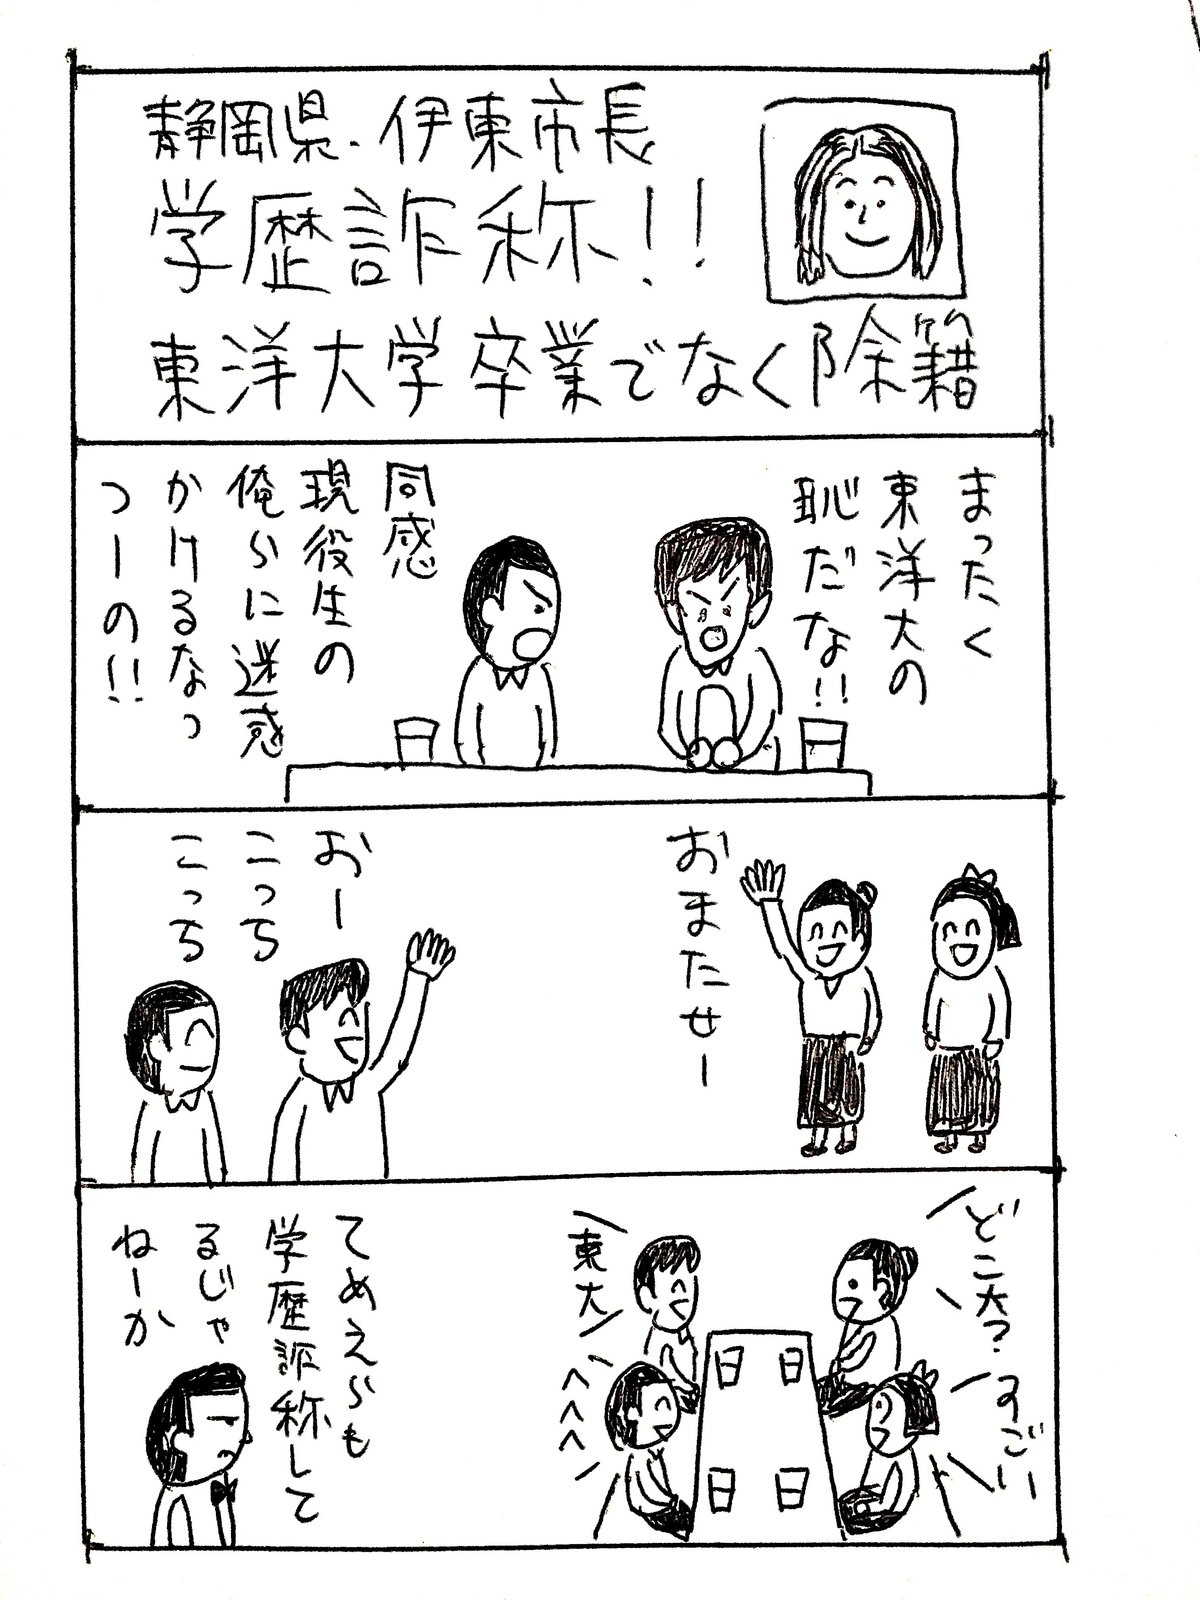 静岡県・伊東市長
学歴詐称!!
東洋大学卒業でなく除籍
まったく
東洋大の
恥だな!!
同感
現役生の
俺らに迷惑
かけるなっ
つーの!!
おまたせー
おー
こっち
こっち
どこ大?
すごい
東大
へへへ
てめえらも
学歴詐称して
るじゃ
ねーか